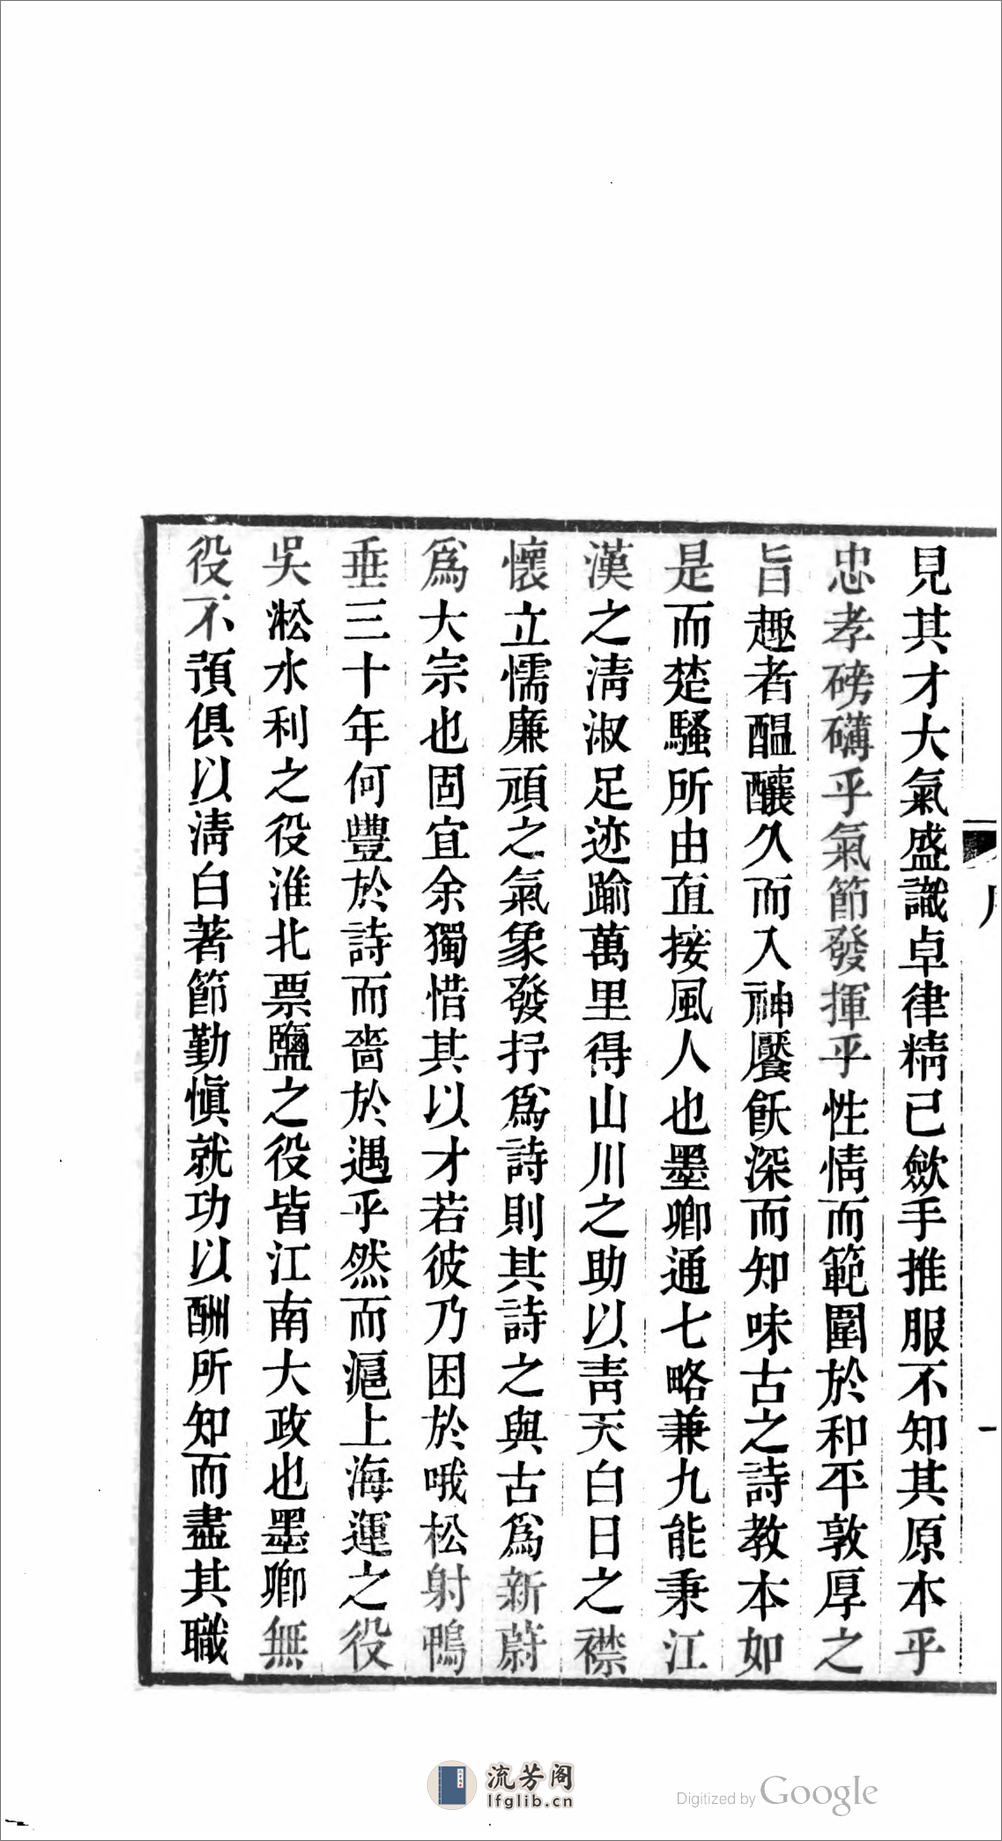 見其才大氣盛識卓律精已歛手推服不知其原本乎
忠孝磅礴乎氣節發揮乎性情而範圍於和平敦厚之
旨趣者醞釀久而入神饜飫深而知味古之詩教本如
是而楚騷所由直接風人也墨卿通七略兼九能秉江
漢之淸淑足迹踰萬里得山川之助以靑天白日之襟
懷立懦廉頑之氣象發抒爲詩則其詩之與古爲新蔚
爲大宗也固宜余獨惜其以才若彼乃困於哦松射鴨
垂三十年何豐於詩而嗇於遇乎然而滬上海運之役
吳淞水利之役淮北票鹽之役皆江南大政也墨卿無
役不預俱以淸白著節勤愼就功以酬所知而盡其職
流芳阁
lfglib.cn
Digitized by Google